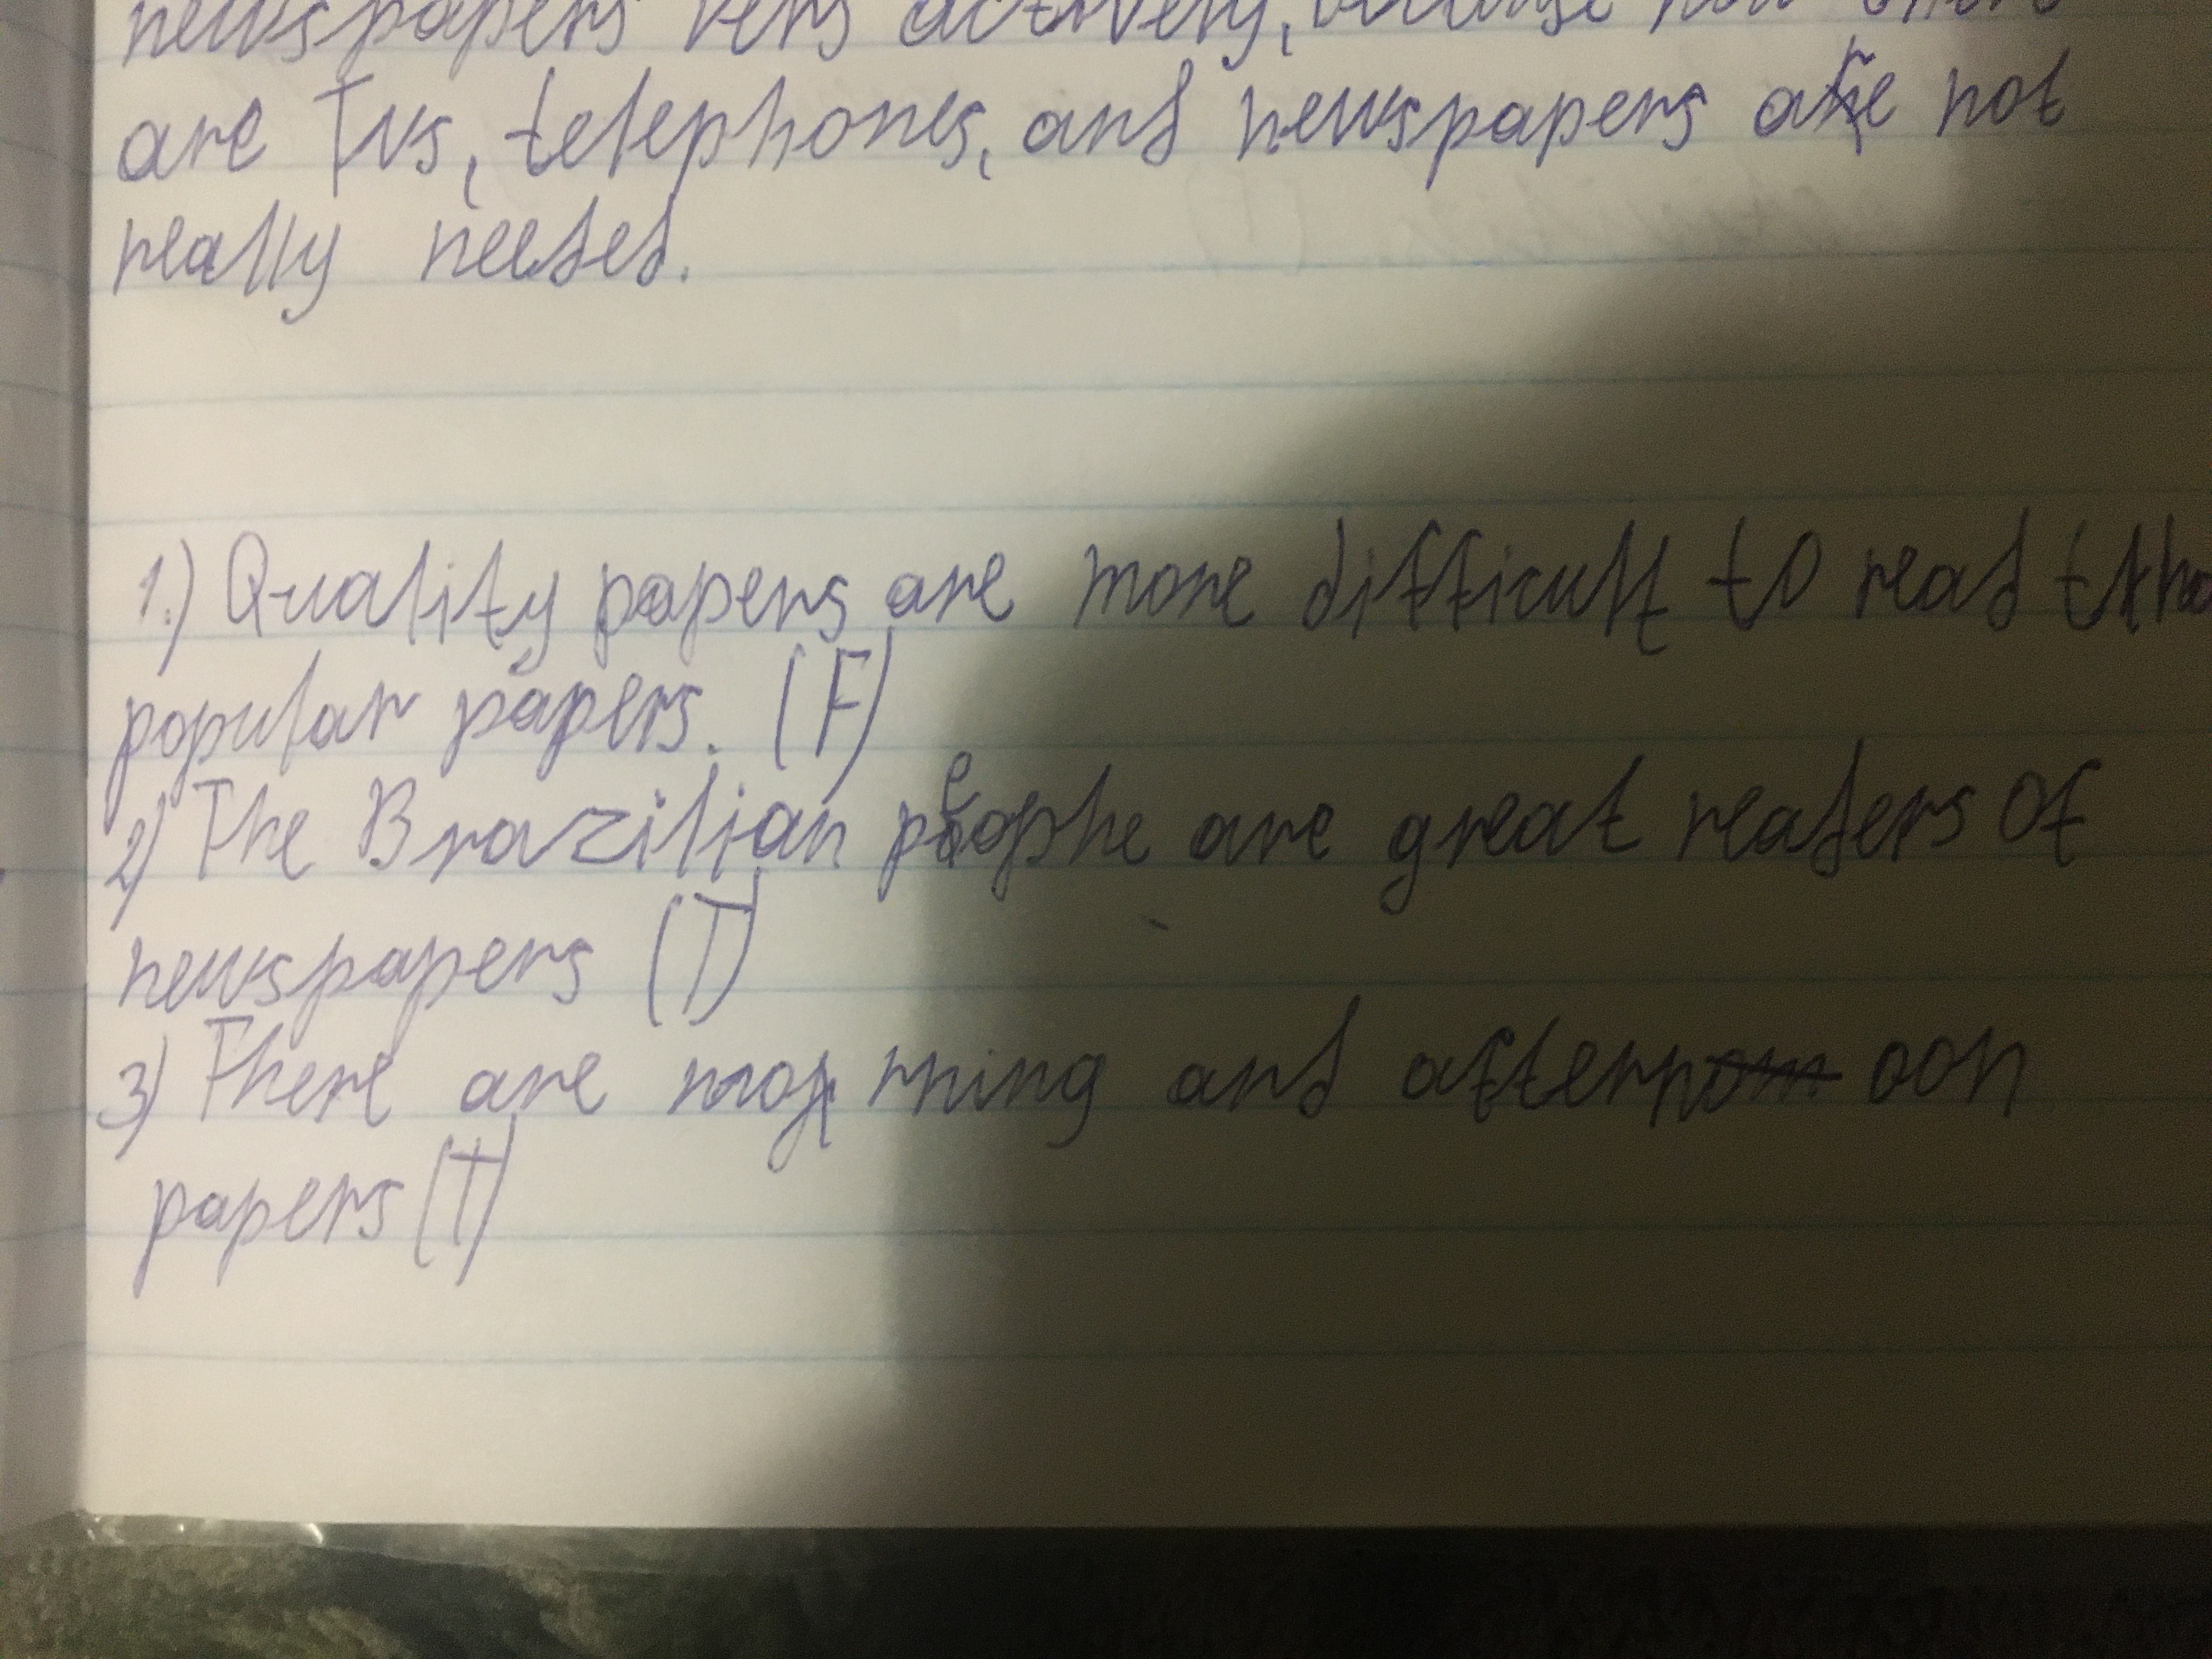 newspapers very actively, because now there
are Tvs, telephones, and newspapers are not
really needed.
1.) Quality papers are more difficult to read tha
popular papers. (F)
2) The Brazilian peophe are great readers of
newspapers (T)
3) There are morning and afternoon
papers (T)